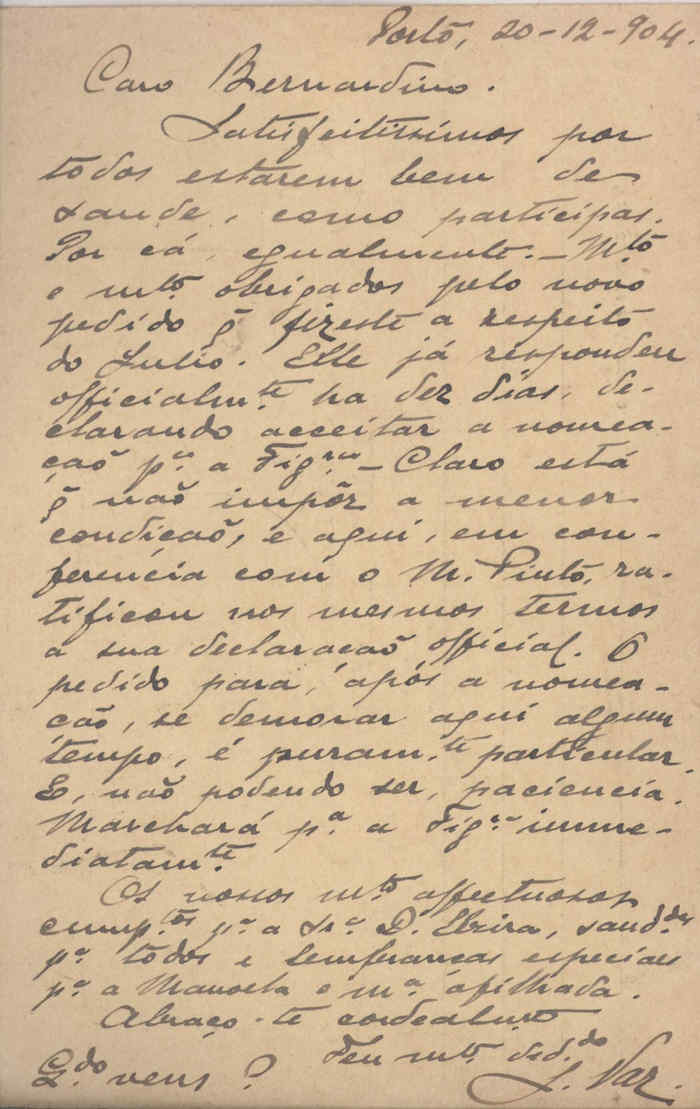 Porto, 20-12-904.
Caro Bernardino.
Satisfeitissimos por
todos estarem bem de
saude, como participas.
Por cá, egualmente. – M.to
e m.to obrigados pelo novo
pedido q̃ fizeste a respeito
do Julio. Elle já respondeu
officialm.te ha dez dias, de-
clarando acceitar a nomea-
ção p.a a Fig.ra – Claro está
q̃ não impõz a menor
condição, e aqui, em con-
ferencia com o M. Pinto, ra-
tificou nos mesmos termos
a sua declaração official. O
pedido para, após a nomea-
ção, se demorar aqui algum
tempo, é puram.te particular.
E, não podendo ser, paciencia.
Marchará p.a a Fig.ra imme-
diatam.te
Os nossos m.to affectuosos
cump.tos p.a a Sr.a D. Elzira, saud.des
p.a todos e lembranças especiaes
p.a a Manoela e m.a afilhada.
Abraço-te cordealm.te
Teu m.to ded.do
Q.do vens? J. Vaz.